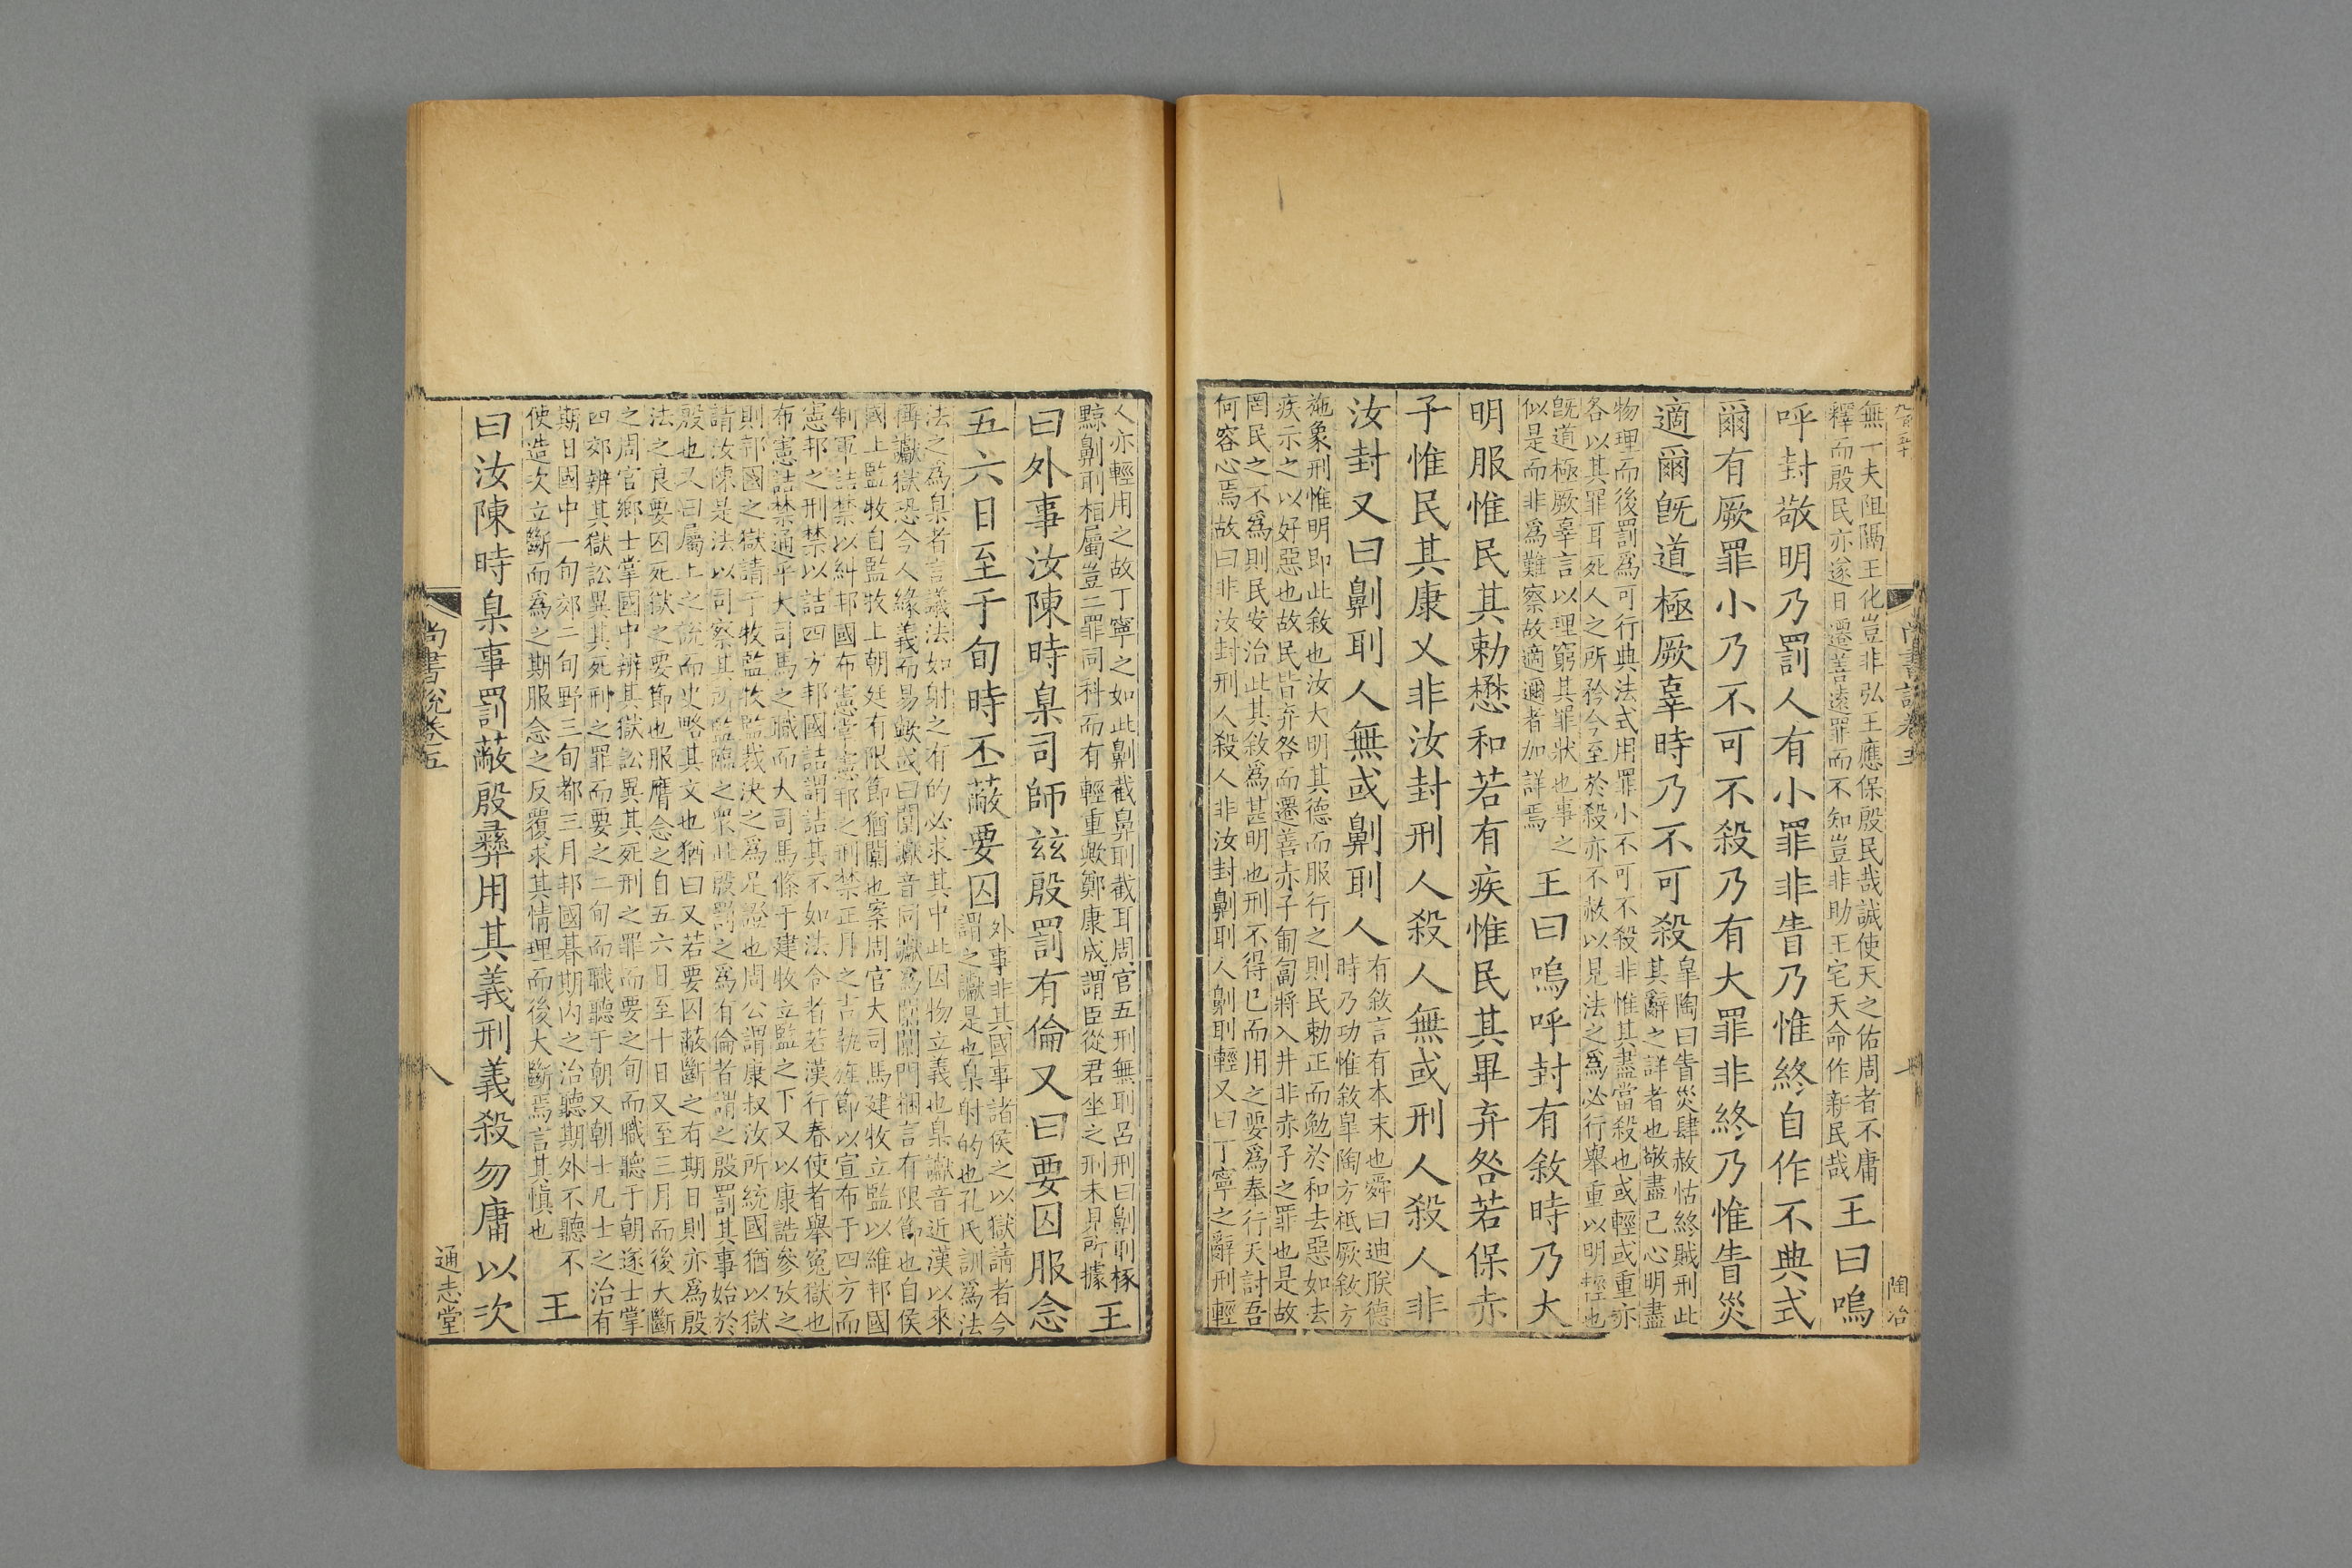 無一夫阻隅王化豈非弘王應保殷民哉誠使天之佑周者不庸
釋而殷民亦遂日遷善遠罪而不知豈非助王宅天命作新民哉
王曰嗚
呼封敬明乃罰人有小罪非眚乃惟終自作不典式
爾有厥罪小乃不可不殺乃有大罪非終乃惟眚災
適爾旣道極厥辜時乃不可殺
皐陶曰眚災肆赦怙終賊刑此
其辭之詳者也敬盡己心明盡
物理而後罰爲可行典法式用罪小不可不殺非惟其盡當殺也或輕或重亦
各以其罪耳死人之所矜今至於殺亦不赦以見法之爲必行舉重以明輕也
旣道極厥辜言以理窮其罪狀也事之
似是而非爲難察故適邇者加詳焉
王曰嗚呼封有敘時乃大
明服惟民其勅懋和若有疾惟民其畢弃咎若保赤
子惟民其康乂非汝封刑人殺人無或刑人殺人非
汝封又曰劓刵人無或劓刵人
有敘言有本末也舜曰迪朕德
時乃功惟敘皐陶方祗厥敘方
施象刑惟明即此敘也汝大明其德而服行之則民勅正而勉於和去惡如去
疾示之以好惡也故民皆弃咎而遷善赤子匍匐將入井非赤子之罪也是故
罔民之不爲則民安治此其敘爲甚明也刑不得已而用之要爲奉行天討吾
何容心焉故曰非汝封刑人殺人非汝封劓刵人劓刵輕又曰丁寧之辭刑輕
尚書說卷五
陶冶
人亦輕用之故丁寧之如此劓截鼻刵截耳周官五刑無刵呂刑曰劓刵椓
黥劓刵相屬豈二罪同科而有輕重歟鄭康成謂臣從君坐之刑未見所據
王
曰外事汝陳時臬司師茲殷罰有倫又曰要囚服念
五六日至于旬時丕蔽要囚
外事非其國事諸侯之以獄請者今
謂之讞是也臬射的也孔氏訓爲法
法之爲臬者言議法如射之有的必求其中此因物立義也臬讞音近漢以來
傅讞獄恐今人緣義而易歟或曰闑讞音同讞爲闑闑門梱言有限節也自侯
國上監牧自監牧上朝廷有限節猶闑也案周官大司馬建牧立監以維邦國
制軍詰禁以糾邦國布憲掌憲邦之刑禁正月之吉執旌節以宣布于四方而
憲邦之刑禁以詰四方邦國詰謂詰其不如法令者若漢行春使者舉冤獄也
布憲詰禁通乎大司馬之職而大司馬條于建牧立監之下又以康誥參攷之
則邦國之獄請于牧監牧監裁決之爲足證也周公謂康叔汝所統國猶以獄
請汝陳是法以司察其所監臨之衆此殷罰之爲有倫者謂之殷罰其事始於
殷也又曰屬上之說而史略其文也猶曰又若要囚蔽斷之有期日則亦爲殷
法之良要囚死獄之要節也服膺念之自五六日至十日又至三月而後大斷
之周官鄉士掌國中辨其獄訟異其死刑之罪而要之旬而職聽于朝遂士掌
四郊辨其獄訟異其死刑之罪而要之二旬而職聽于朝又朝士凡士之治有
期日國中一旬郊二旬野三旬都三月邦國朞期內之治聽期外不聽不
使造次立斷而爲之期服念之反覆求其情理而後大斷焉言其愼也
王
曰汝陳時臬事罰蔽殷彝用其義刑義殺勿庸以次
尚書說卷五
八
通志堂